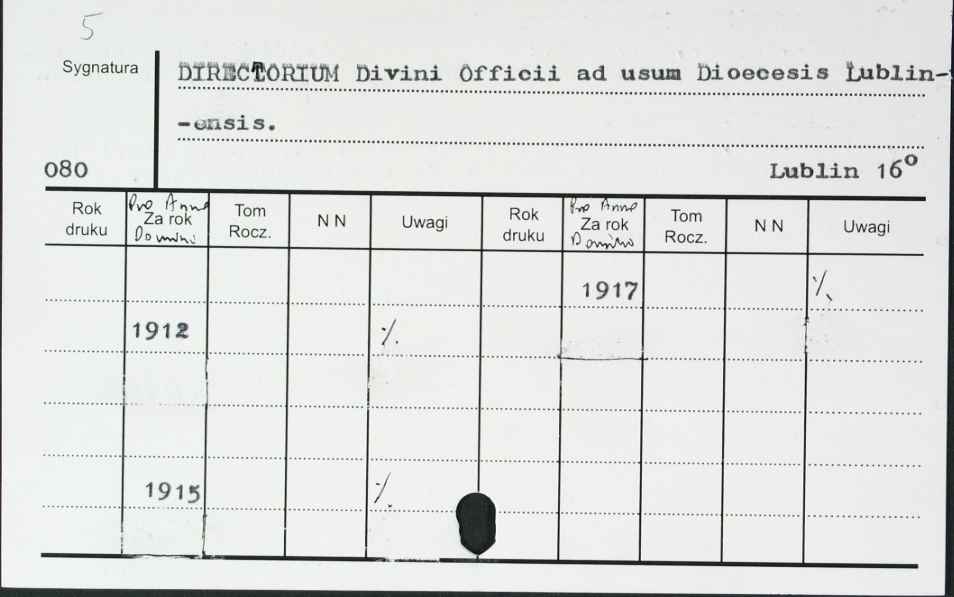 5
Sygnatura
DIRECTORIUM Divini Officii ad usum Dioecesis Lublin-
-ensis.
080
Lublin 16°
Rok druku
Pro Anno
Za rok
Domini
Tom Rocz.
N N
Uwagi
Rok druku
Pro Anno
Za rok
Domini
Tom Rocz.
N N
Uwagi
1917 ·/.
1912 ·/.
1915 ·/.